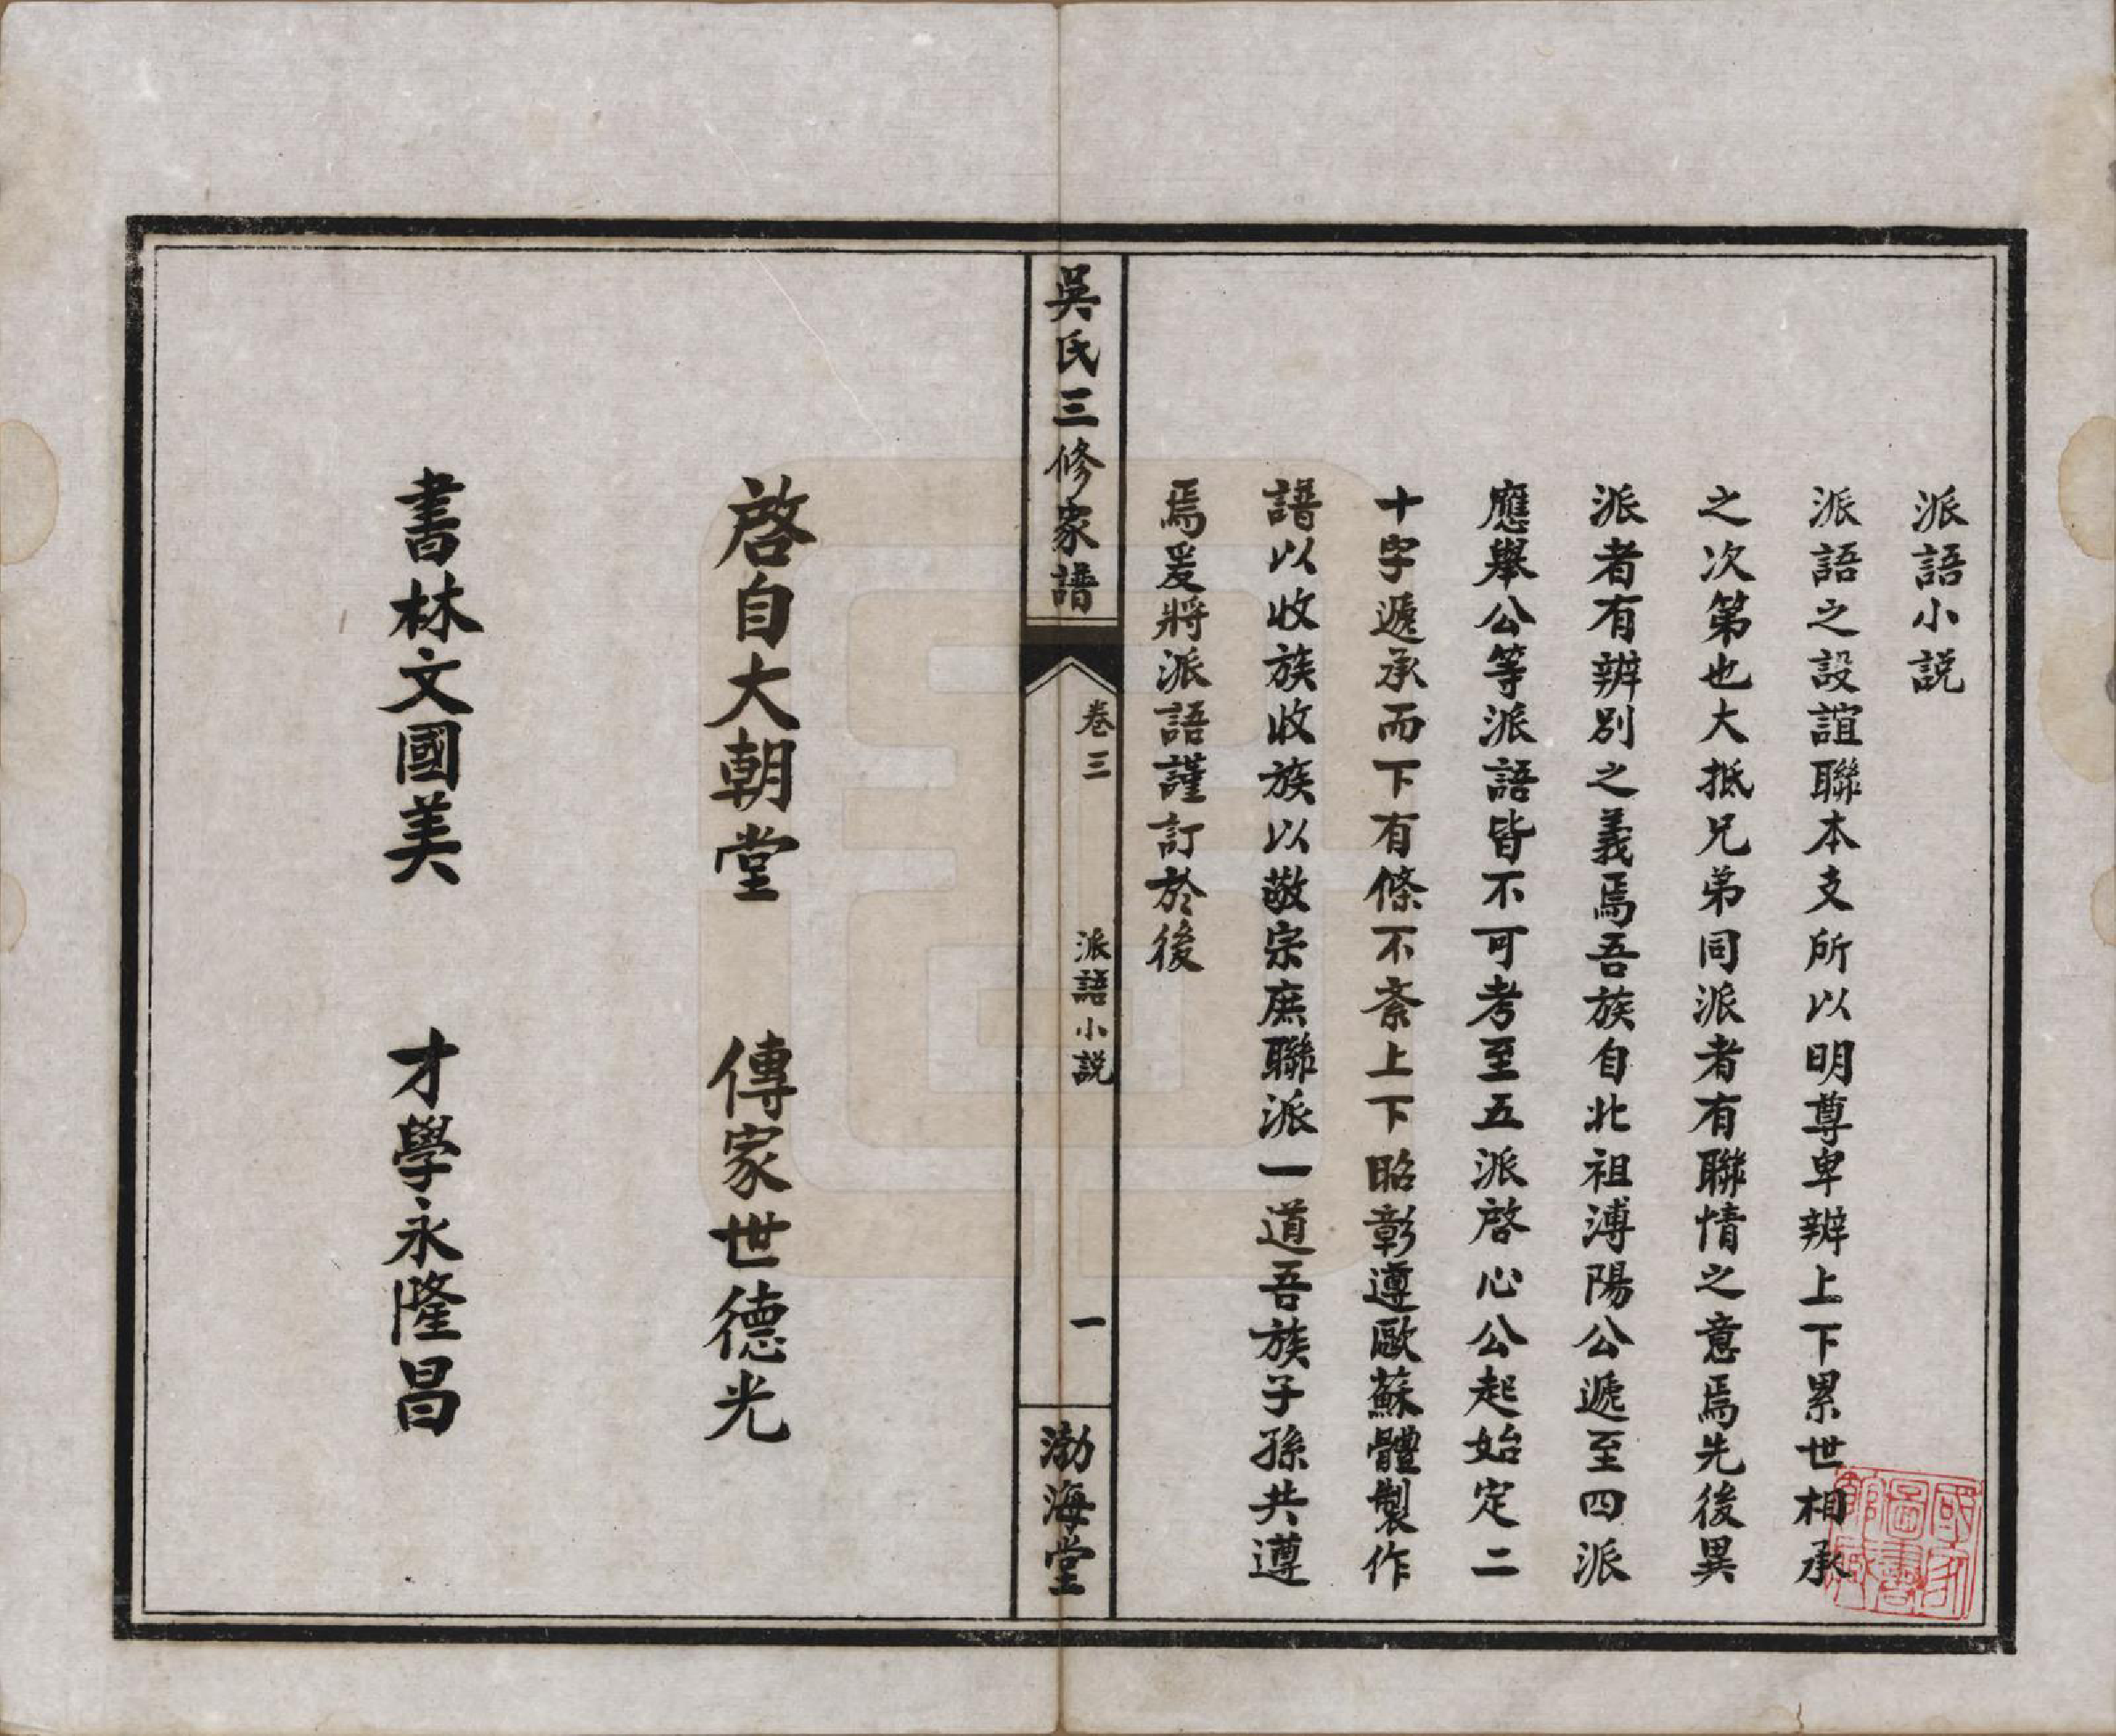 派語小説
派語之設誼聯本支所以明尊卑辨上下累世相承
之次第也大抵兄弟同派者有聯情之意焉先後異
派者有辨別之義焉吾族自北祖溥陽公遞至四派
應舉公等派語皆不可考至五派啓心公起始定二
十字遞承而下有條不紊上下昭彰遵歐蘇體製作
譜以收族收族以敬宗庶聯派一道吾族子孫共遵
焉爰將派語謹訂於後
吳氏三修家譜
卷三
派語小説
一
渤海堂
啓自大朝堂 傳家世德光
書林文國美 才學永隆昌